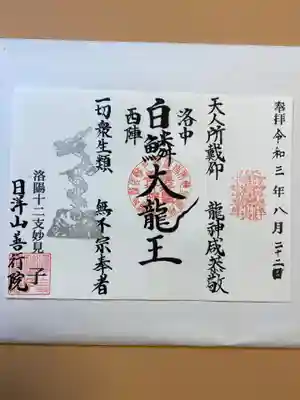 奉拝 令和三年八月二十二日
天人所戴仰 龍神咸恭敬
洛中
白鱗大龍王
西陣
一切衆生類 無不宗奉者
洛陽十二支妙見
子
日洋山善行院